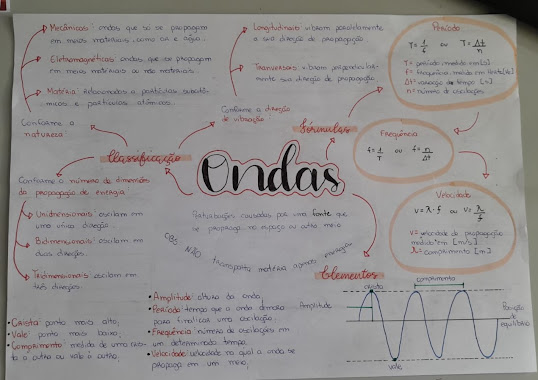 Mecânicas: ondas que só se propagam
em meios materiais, como ar e água.
Eletromagnéticas: ondas que se propagam
em meios materiais ou não materiais.
Matéria: relacionadas a partículas subatô-
micas e partículas atômicas.
Conforme a
natureza
Longitudinais: vibram paralelamente
a sua direção de propagação.
Tranversais: vibram perpendicular-
mente sua direção de propagação.
Conforme a direção
de vibração
Classificação
Fórmulas
Período:
T = 1/f ou T = Δt/n
T = período medido em [s]
f = frequência medido em Hertz [Hz]
Δt = variação de tempo [s]
n = número de oscilações
Frequência
f = 1/T ou f = n/Δt
Velocidade
v = λ · f ou
v = velocidade de propagação
medido em [m/s]
λ = comprimento [m]
Ondas
Perturbações causadas por uma fonte que
se propaga no espaço ou outro meio
OBS: NÃO transporta matéria apenas energia
Conforme o número de dimensões
da propagação de energia
Unidimensionais: oscilam em
uma única direção.
Bidimensionais: oscilam em
duas direções.
Tridimensionais: oscilam em
três direções.
Elementos
Crista: ponto mais alto,
Vale: ponto mais baixo,
Comprimento: medida de uma cris-
ta a outra ou vale a outro,
Amplitude: altura da onda,
Período: tempo que a onda demora
para finalizar uma oscilação.
Frequência: número de oscilações em
um determinado tempo,
Velocidade: velocidade na qual a onda se
propaga em um meio,
crista
comprimento
Amplitude
Posição
de
equilíbrio
vale